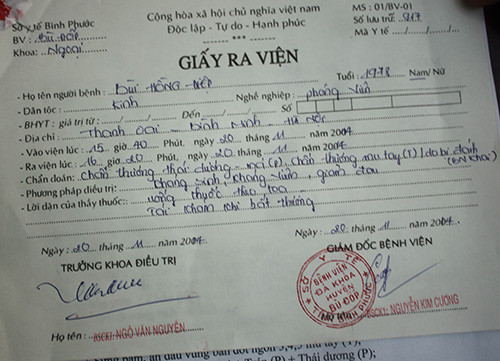 Sở y tế Bình Phước
BV : BÙ-ĐỐP
Khoa: Ngoại
Cộng hòa xã hội chủ nghĩa việt nam
Độc lập - Tự do - Hạnh phúc
MS : 01/BV-01
Số lưu trữ: 817
Mã Y tế ...../...../.....
GIẤY RA VIỆN
- Họ tên người bệnh : BÙI HỒNG ĐIỆP Tuổi : 1978 Nam/ Nữ
- Dân tộc : Kinh Nghề nghiệp : phóng viên
- BHYT : giá trị từ : ...../...../..... Đến ...../...../..... Số
- Địa chỉ : Thanh oai - Hà Nội
- Vào viện lúc : 15 giờ 40 Phút, ngày 20 tháng 11 năm 2004
- Ra viện lúc : 16 giờ 20 Phút, ngày 20 tháng 11 năm 2004
- Chẩn đoán: Chấn thương thái dương (P), chấn thương mu tay (T) / do bị đánh
(BN khai)
- Phương pháp điều trị: Kháng sinh, kháng viêm, giảm đau
- Lời dặn của thầy thuốc: uống thuốc theo toa
Tái khám khi bất thường
Ngày: 20 tháng 11 năm 2004
Ngày : 20 tháng 11 năm 2004
TRƯỞNG KHOA ĐIỀU TRỊ
GIÁM ĐỐC BỆNH VIỆN
SỞ Y TẾ
BỆNH VIỆN
ĐA KHOA
HUYỆN
BÙ ĐỐP
TỈNH BÌNH PHƯỚC
Họ tên : BSCKI: NGÔ VĂN NGUYÊN
BSCKI: NGUYỄN KIM CƯƠNG